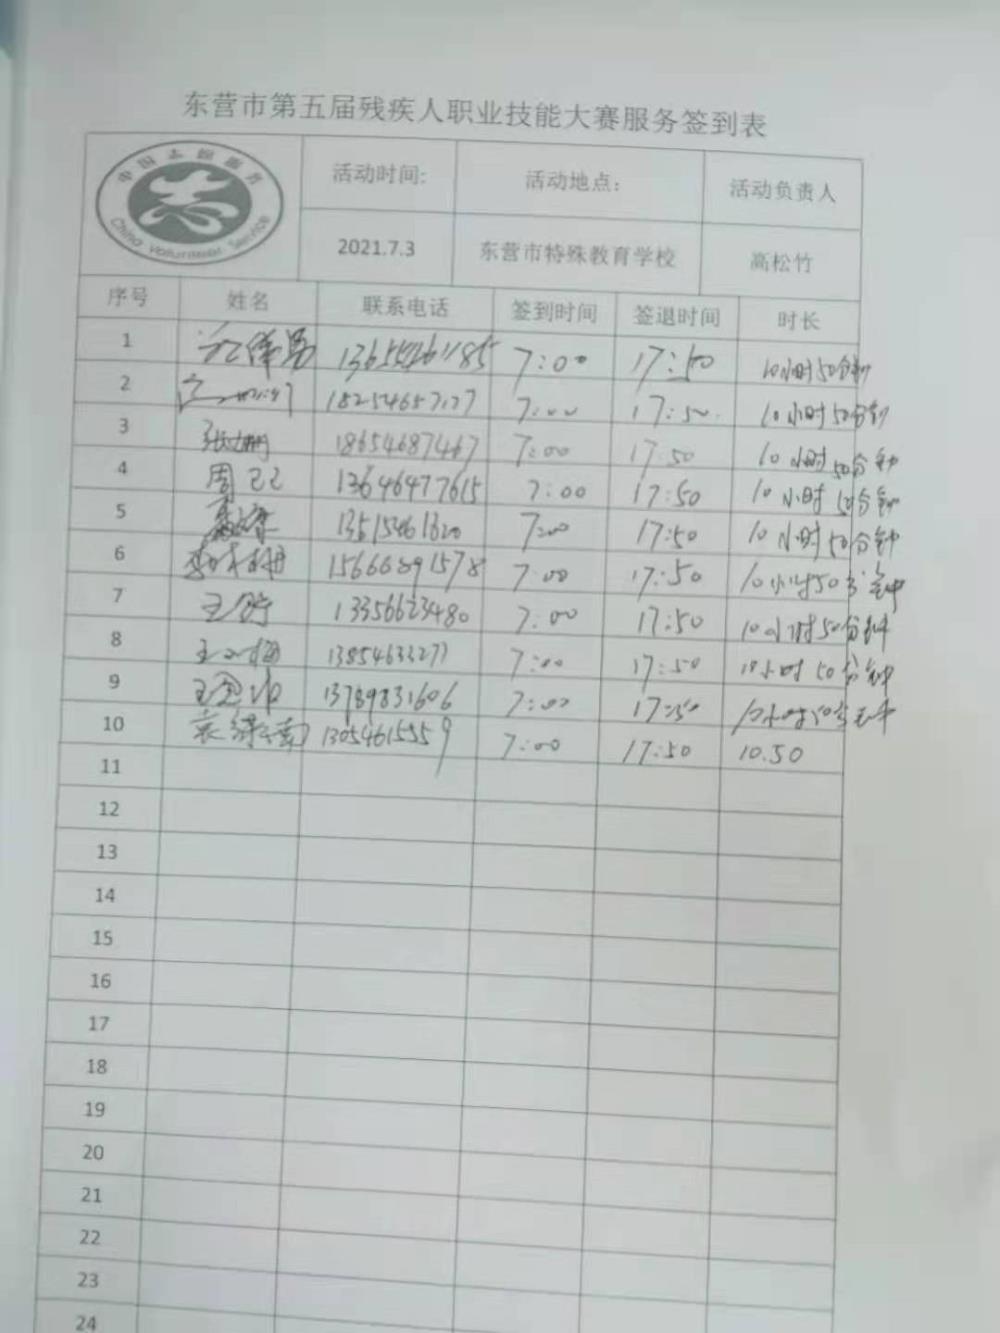 东营市第五届残疾人职业技能大赛服务签到表
中国志愿服务
China Volunteer Service
活动时间: 活动地点: 活动负责人
2021.7.3 东营市特殊教育学校 高松竹
序号 姓名 联系电话 签到时间 签退时间 时长
1 7:00 17:50 10小时50分钟
2 18254657127 7:00 17:50 10小时50分钟
3 18654687467 7:00 17:50 10小时50分钟
4 周己己 13646477615 7:00 17:50 10小时50分钟
5 7:00 17:50 10小时50分钟
6 15666891578 7:00 17:50 10小时50分钟
7 13356623480 7:00 17:50 10小时50分钟
8 13854633277 7:00 17:50 10小时50分钟
9 13789831606 7:00 17:50
10 13054615559 7:00 17:50 10.50
11
12
13
14
15
16
17
18
19
20
21
22
23
24